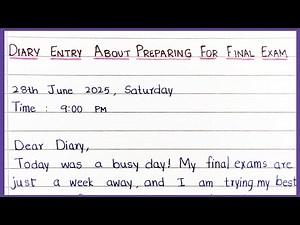 DIARY ENTRY ABOUT PREPARING FOR FINAL EXAM
28th June 2025, Saturday
Time : 9:00 PM
Dear Diary,
Today was a busy day! My final exams are
just a week away, and I am trying my best